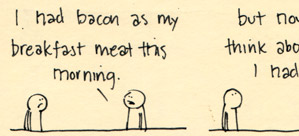 I had bacon as my
breakfast meat this
morning.
but
think
I had